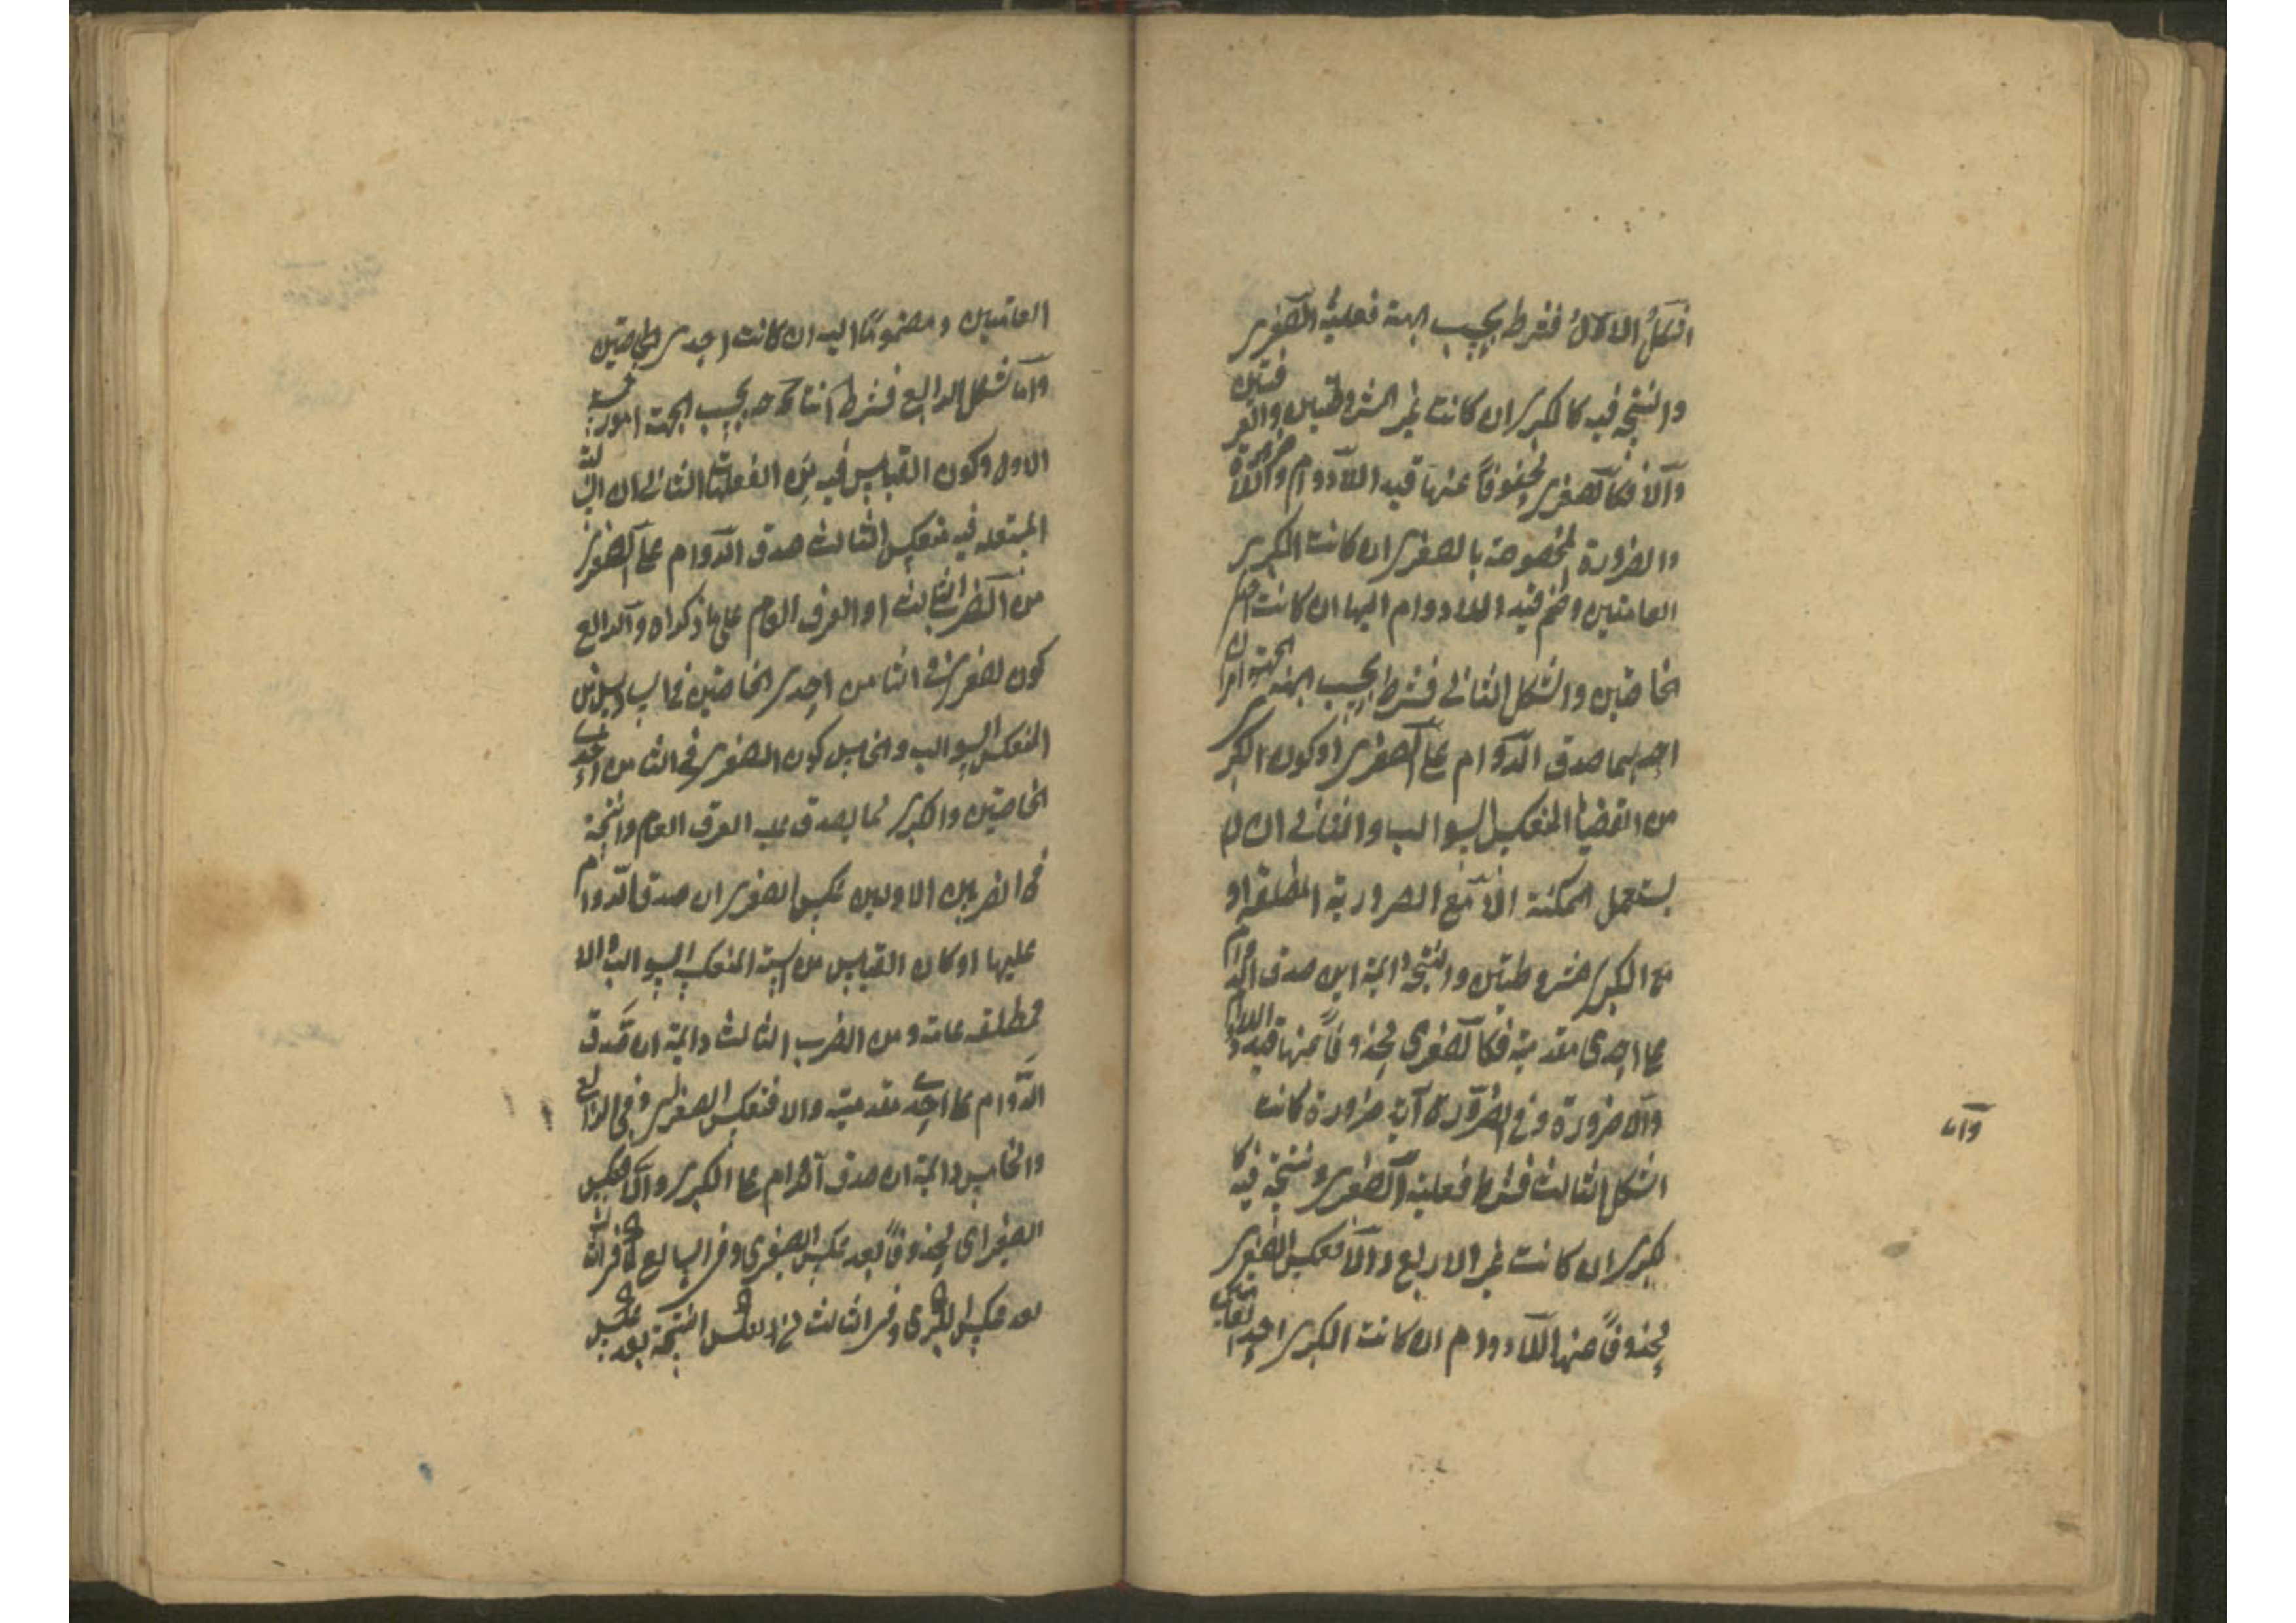 الشكل الاول فشرط بحسب الجهة فعلية الصغرى
والنتيجة فيه كالكبرى ان كانت غير المشروطتين والعرفيتين
والا فكالصغرى محذوفاً عنها قيد اللادوام واللاضرورة
والضرورة المخصوصة بالصغرى ان كانت الكبرى
العامتين وضم قيد اللادوام اليها ان كانت احدى
الخاصتين والشكل الثانى فشرط بحسب الجهة امران
احدهما صدق الدوام على الصغرى او كون الكبرى
من القضايا المنعكسة السوالب والثانى ان لا
يستعمل الممكنة الا مع الضرورية المطلقة او
مع الكبرى مشروطتين والنتيجة دايمة ان صدق الدوام
على احدى مقدمتيه فكالصغرى محذوفاً عنها قيد اللادوام
واللاضرورة والضرورة اية ضرورة كانت
وأما
الشكل الثالث فشرط فعلية الصغرى ونتيجة فيه كا
لكبرى ان كانت غير الاربع والا فعكس الصغرى
محذوفاً عنها اللادوام ان كانت الكبرى احدى
العامتين ومضموماً اليه ان كانت احدى الخاصتين
واما شكل الرابع فشرط انتاجه بحسب الجهة امور خمسة
الاول كون القياس فيه من الفعليات الثانى ان السالبة
المستعملة فيه منعكسة الثالث صدق الدوام على الصغرى
من الضرب الثالث او العرفى العام على ما ذكراه والرابع
كون الصغرى فى الثامن احدى الخاصتين
المنعكسة السوالب والخامس كون الصغرى فى الثامن احدى
الخاصتين والكبرى مما يصدق عليه العرفى العام والنتيجة
فى الضربين الاولين عكس الصغرى ان صدق الدوام
عليها او كان القياس من الست المنعكسة السوالب والا
فمطلقة عامة ومن الضرب الثالث دايمة ان صدق
الدوام على احدى مقدمتيه والا فعكس الصغرى وفى الرابع
والخامس دايمة ان صدق الدوام على الكبرى والا فعكس
الصغرى محذوفاً بعد عكس الصغرى وفى السابع كما فى الثالث
بعد عكس الكبرى وفى الثالث بعكس النتيجة بعد عكس